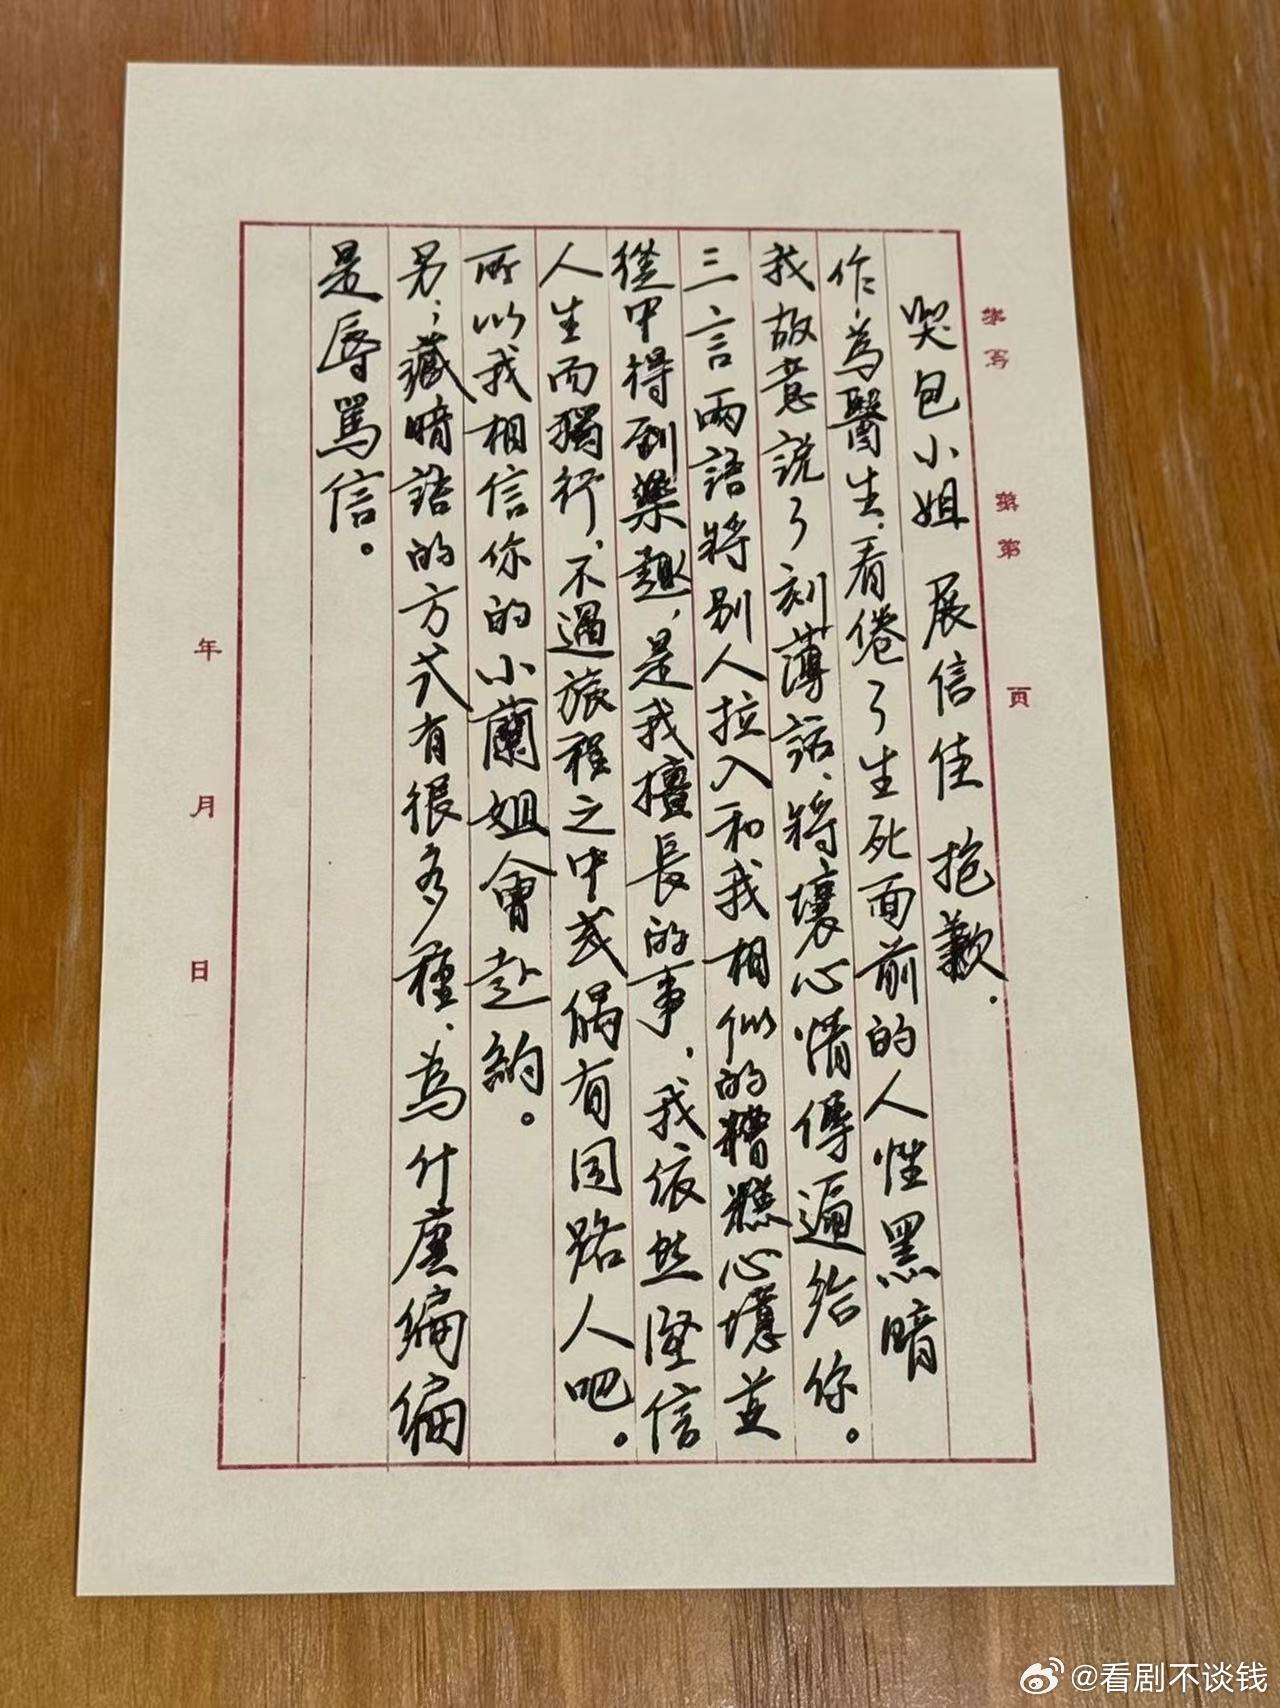 哭包小姐 展信佳 抱歉.
作為醫生、看倦了生死面前的人性黑暗
我故意說了刻薄話、將壞心情傳遍給你。
三言兩語將別人拉入和我相似的糟糕心境並
從中得到樂趣，是我擅長的事、我依然堅信
人生而獨行、不過旅程之中或偶有同路人吧。
所以我相信你的小蘭姐會赴約。
另；藏暗語的方式有很多種、為什麼偏偏
是辱罵信。
年 月 日
第 页
@看剧不谈钱